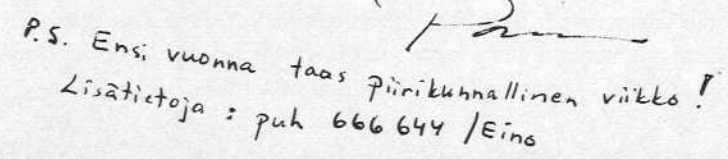 P.S. Ensi vuonna taas piirikunnallinen viikko!
Lisätietoja : puh 666 644 /Eino